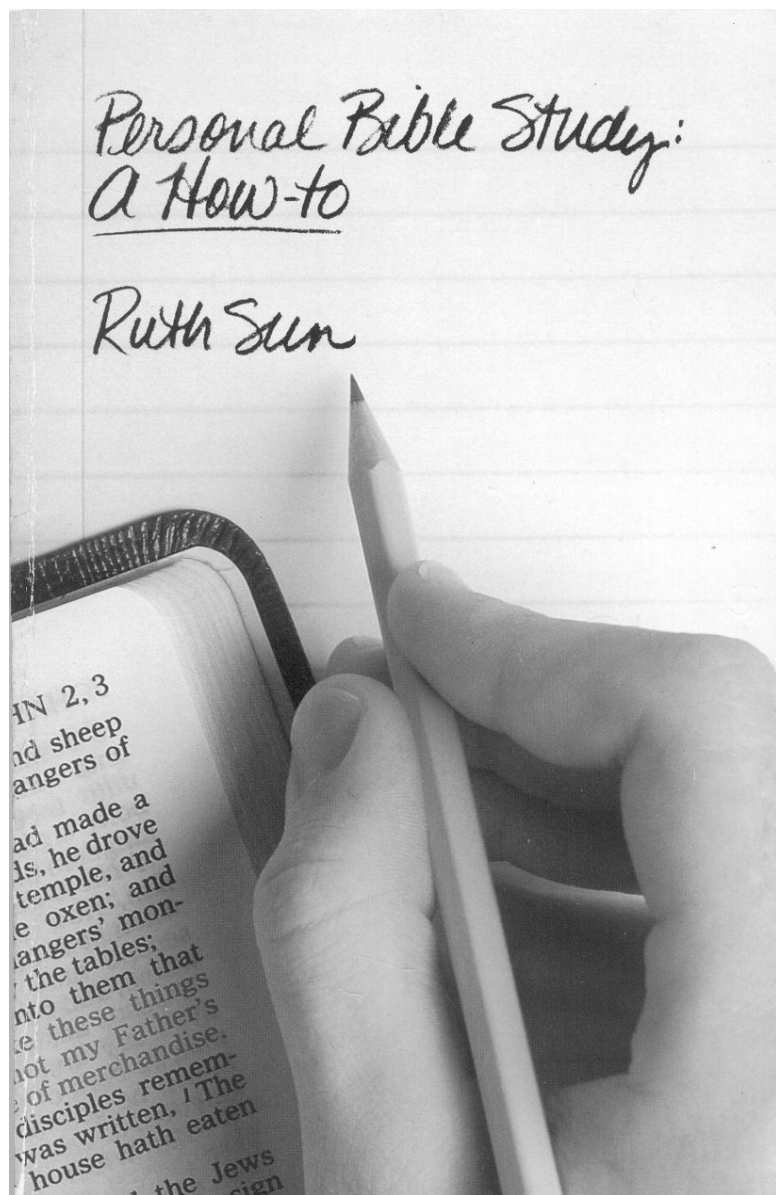 Personal Bible Study:
A How-to
Ruth Sun
HN 2, 3
nd sheep
angers of
ad made a
ds, he drove
temple, and
e oxen; and
angers' mon-
the tables;
nto them that
e these things
not my Father's
of merchandise.
disciples remem-
was written, I The
house hath eaten
the Jews
sign